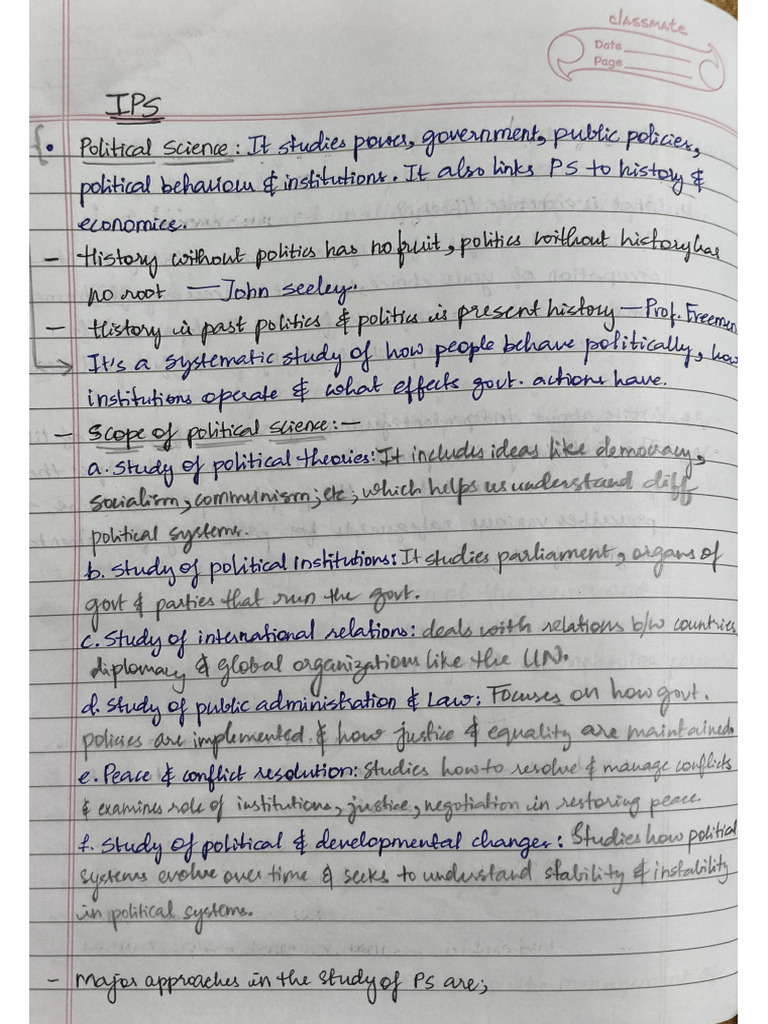 classmate
Date
Page
IPS
• Political Science: It studies power, government, public policies,
political behaviour & institutions. It also links PS to history &
economics.
- History without politics has no fruit, politics without history has
no root — John Seeley.
- History is past politics & politics is present history — Prof. Freeman
It's a systematic study of how people behave politically, how
institutions operate & what effects govt. actions have.
- Scope of political science:-
a. Study of political theories: It includes ideas like democracy,
socialism, communism, etc, which helps us understand diff
political systems.
b. Study of political institutions: It studies parliament, organs of
govt & parties that run the govt.
c. Study of international relations: deals with relations b/w countries,
diplomacy & global organizations like the UN.
d. Study of public administration & Law: Focuses on how govt.
policies are implemented & how justice & equality are maintained.
e. Peace & conflict resolution: Studies how to resolve & manage conflicts
& examines role of institutions, justice, negotiation in restoring peace.
f. Study of political & developmental changes: Studies how political
systems evolve over time & seeks to understand stability & instability
in political systems.
- Major approaches in the study of PS are;